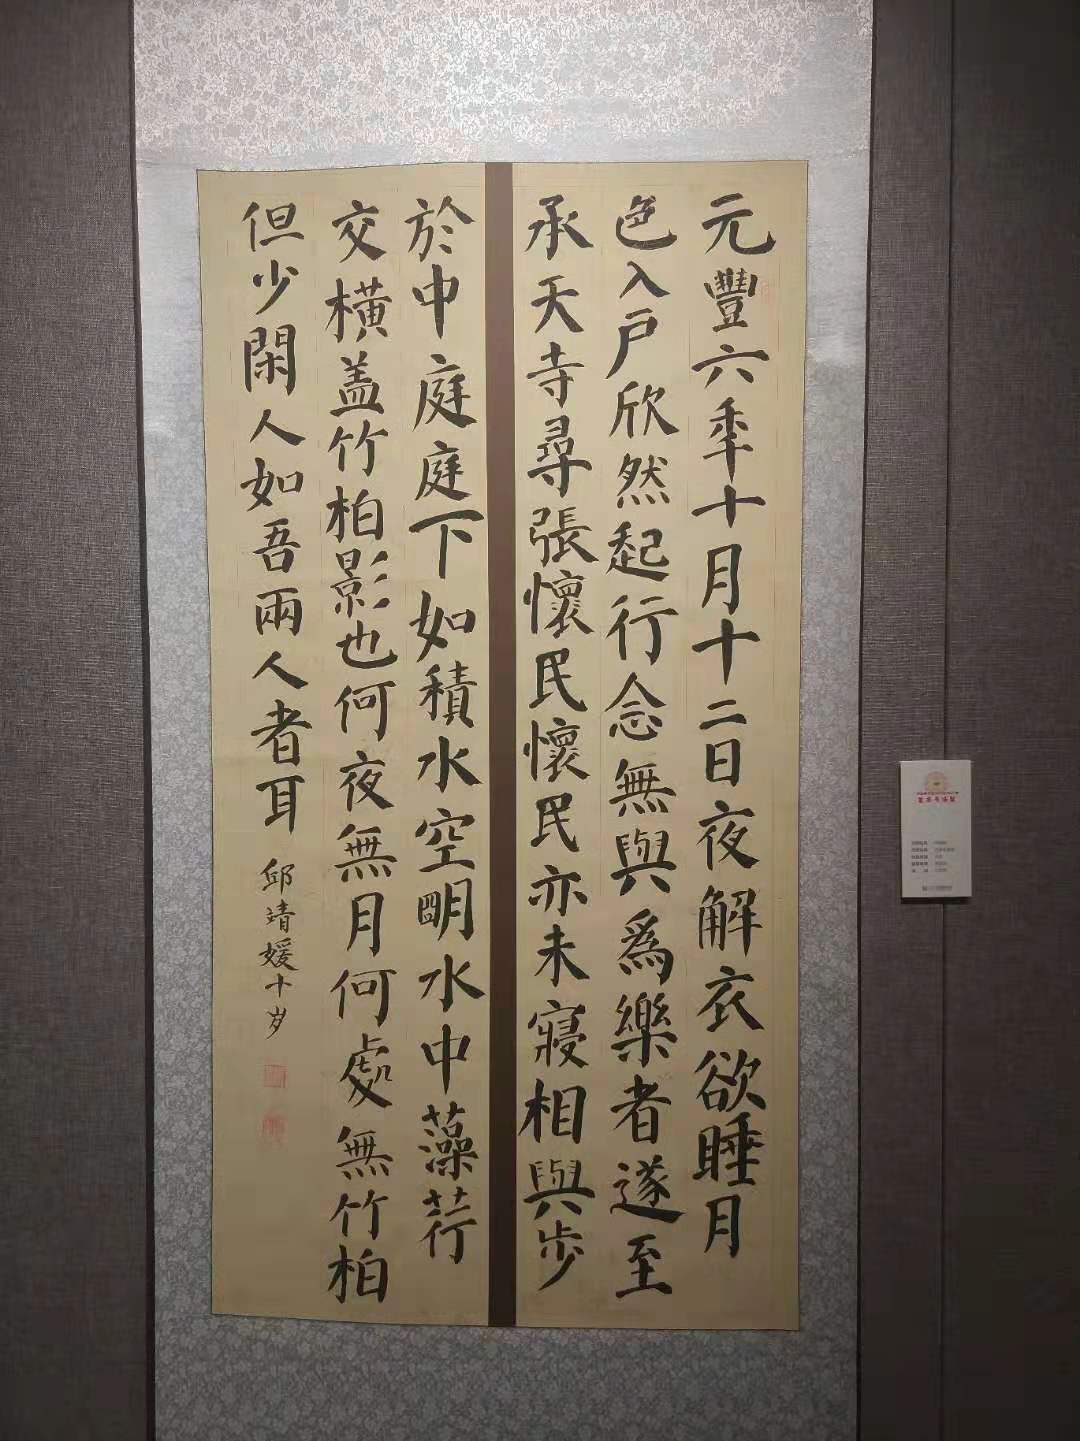 元豐六秊十月十二日夜解衣欲睡月
色入戶欣然起行念無與為樂者遂至
承天寺尋張懷民懷民亦未寢相與步
於中庭庭下如積水空明水中藻荇
交橫盖竹柏影也何夜無月何處無竹柏
但少閑人如吾兩人者耳
邱靖媛十岁